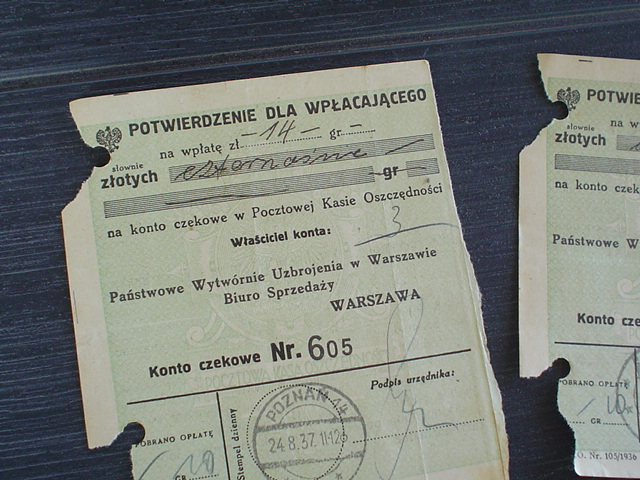 POTWIERDZENIE DLA WPŁACAJĄCEGO
na wpłatę zł. -14- gr. -
słownie
złotych czternaście
gr
na konto czekowe w Pocztowej Kasie Oszczędności
Właściciel konta: 3
Państwowe Wytwórnie Uzbrojenia w Warszawie
Biuro Sprzedaży
WARSZAWA
Konto czekowe Nr. 605
Podpis urzędnika:
POBRANO OPŁATĘ
GR 10
Stempel dzienny
POZNAŃ 14
24.8.37.11-12
POTWIE
na w
słownie
złotych
na k
Państwowe W
Konto cze
POBRANO OPŁATĘ
GR
O. Nr. 105/1936